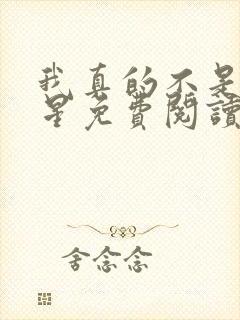 我真的不是
星免費閱讀
舍念念